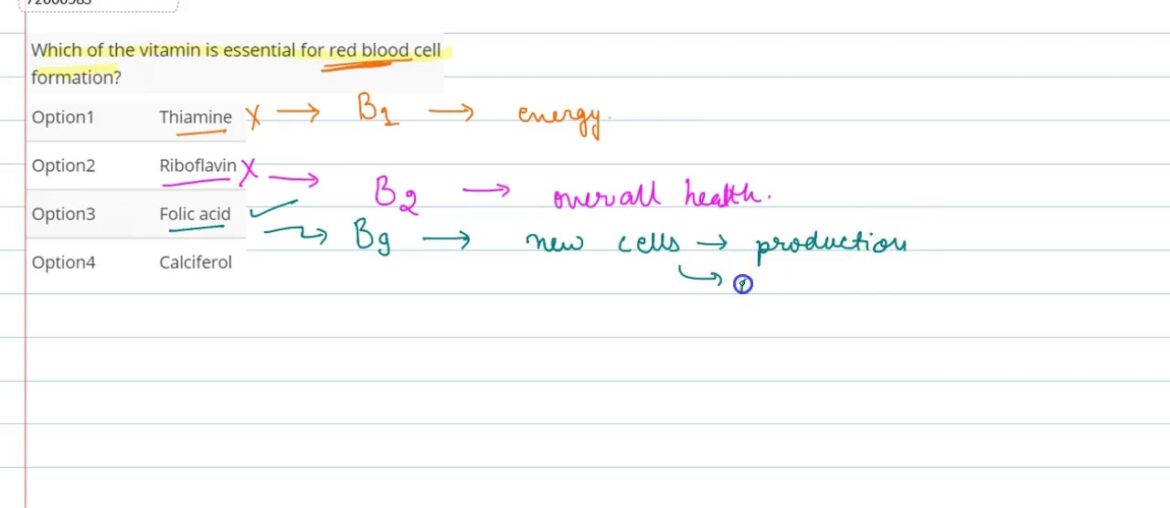 Which of the vitamin is essential for red blood cell
formation?
Option1 Thiamine X → B1 → energy.
Option2 Riboflavin X → B2 → overall health.
Option3 Folic acid ✓ → B9 → new cells → production
Option4 Calciferol